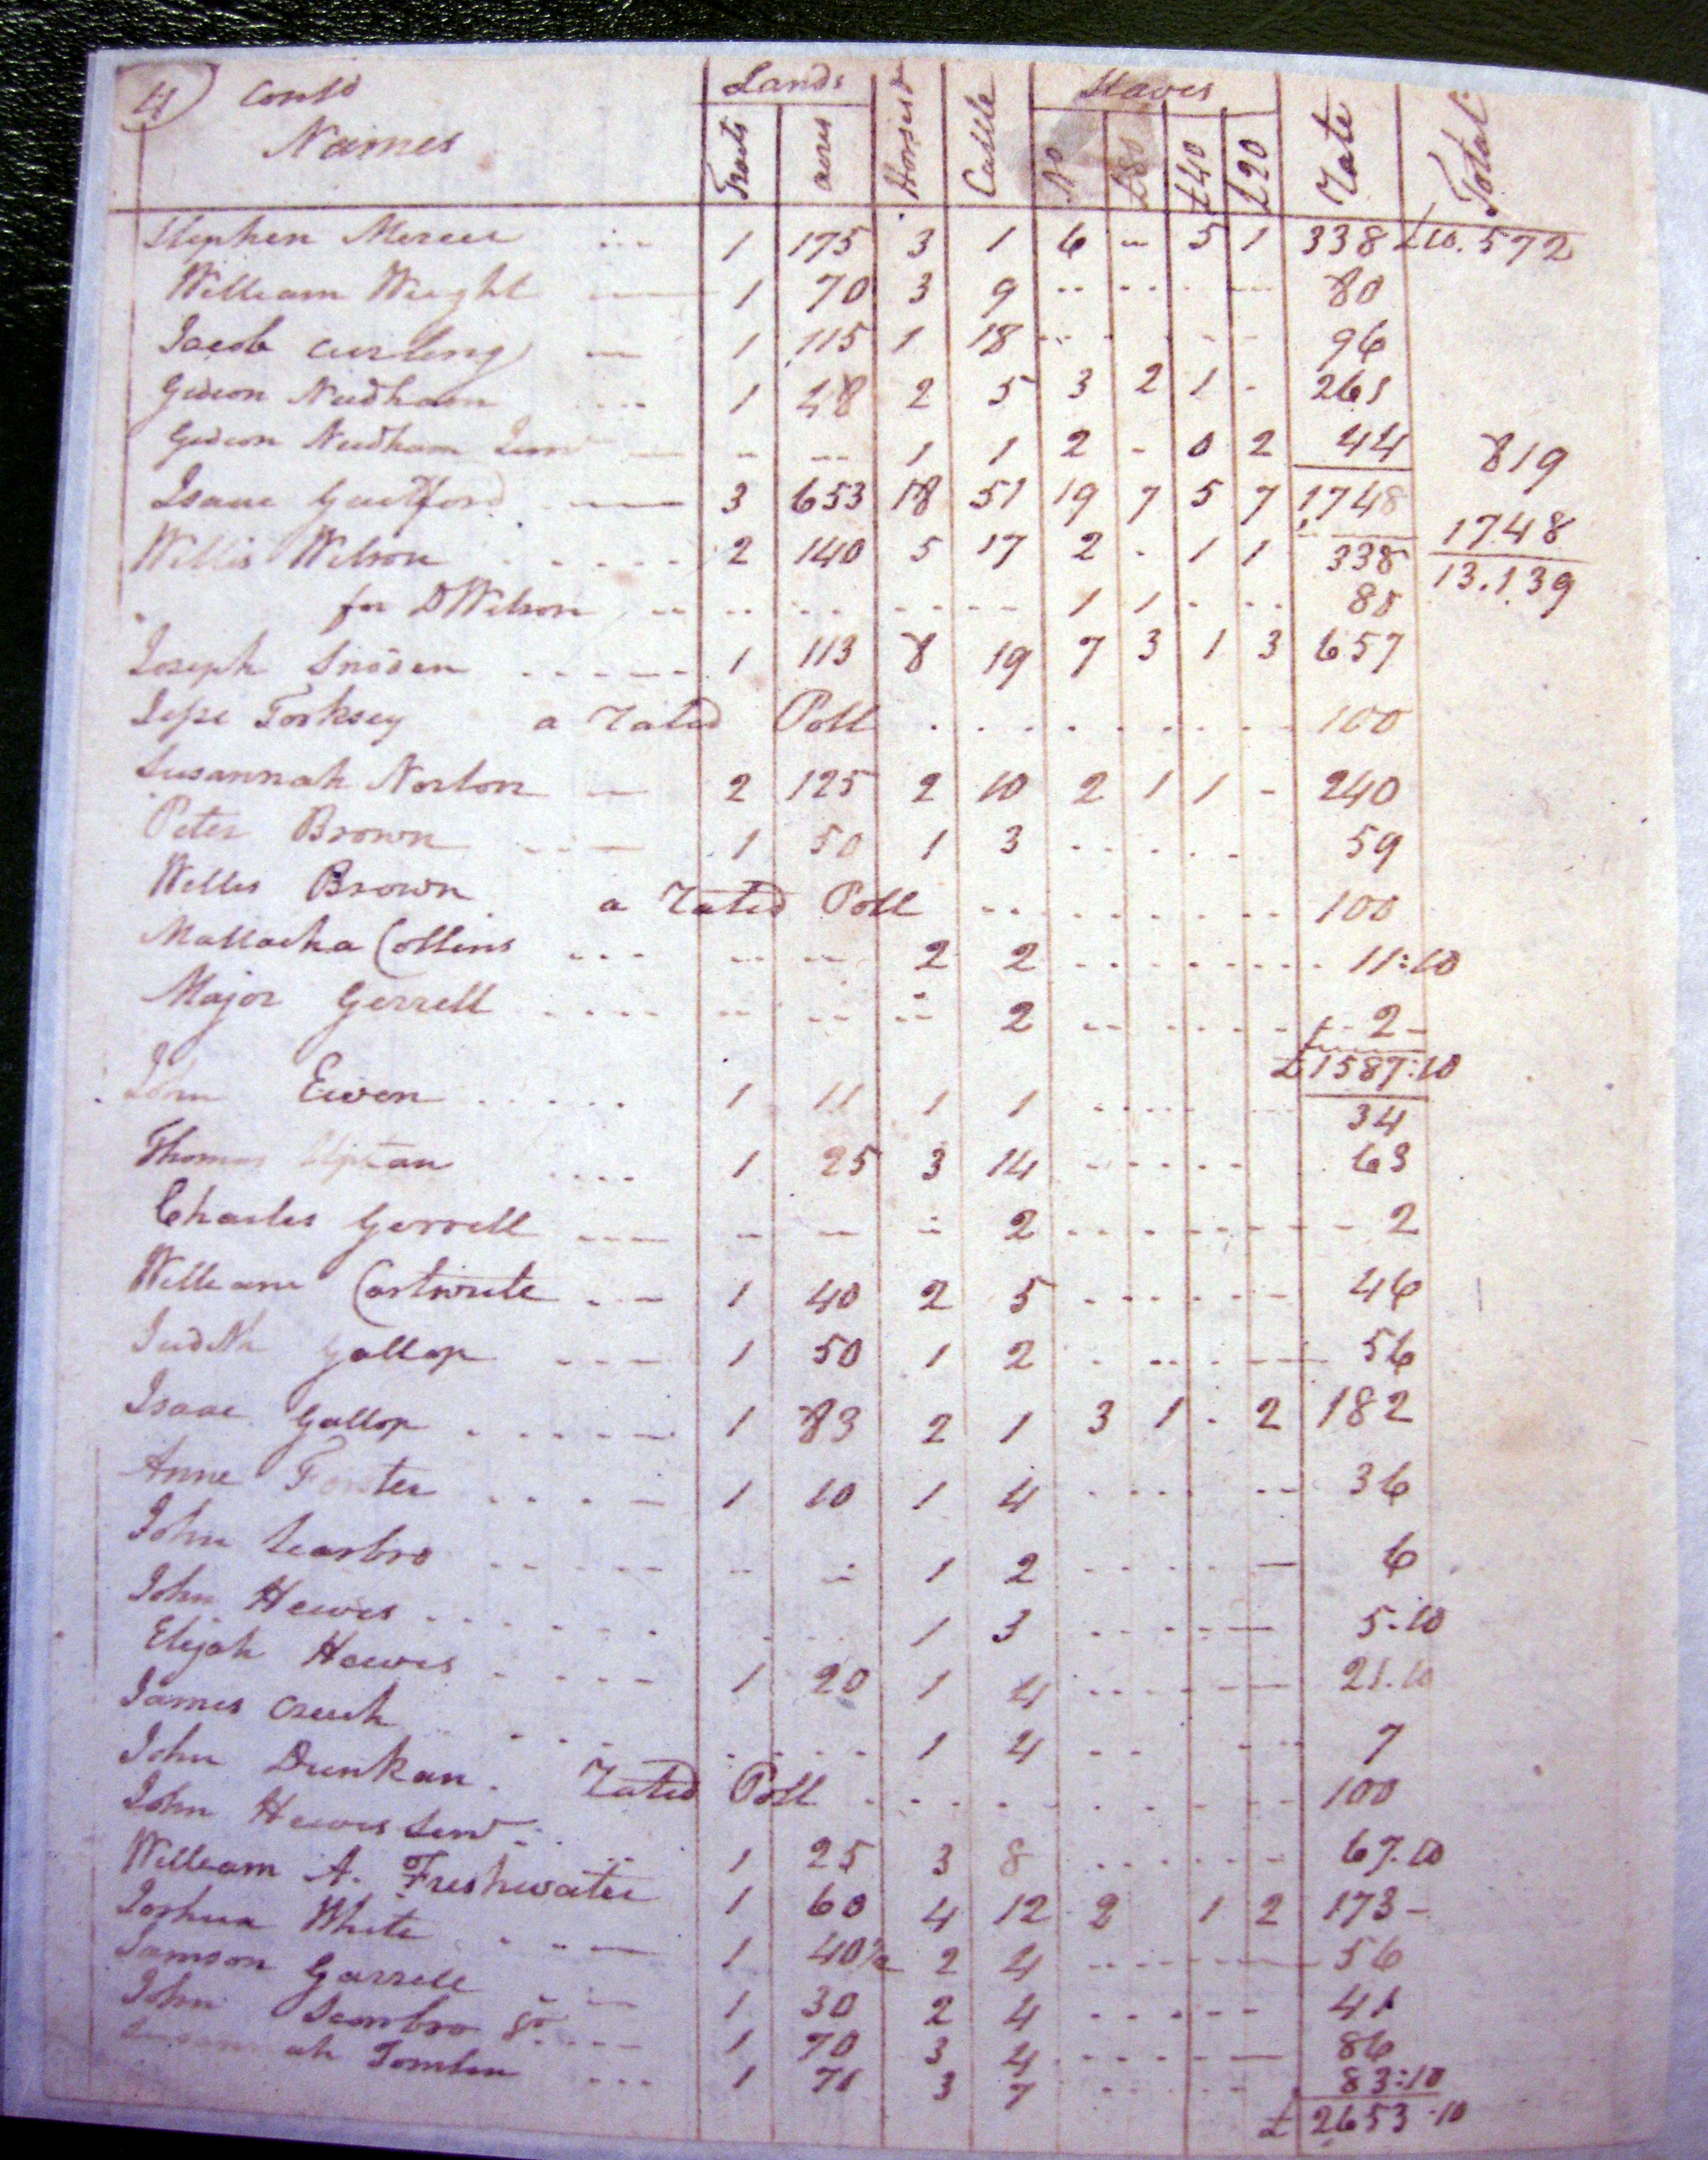 4) Contd Lands Horses Cattle Slaves Rate Total
Names Tracts acres No £80 £40 £20
Stephen Mercer 1 175 3 1 6 - 5 1 338 £10.572
William Wright 1 70 3 9 80
Jacob Curling 1 115 1 18 96
Gideon Needham 1 48 2 5 3 2 1 - 261
Gideon Needham Junr 1 1 2 - 0 2 44 819
Isaac Guilford 3 653 18 51 19 7 5 7 1748 1748
Willis Wilson 2 140 5 17 2 - 1 1 338 13.139
for D Wilson 1 1 80
Joseph Snoden 1 113 8 19 7 3 1 3 657
Jesse Torksey a Rated Poll 100
Susannah Norton 2 125 2 10 2 1 1 - 240
Peter Brown 1 50 1 3 59
Willis Brown a Rated Poll 100
Mallacha Collins 2 2 11:10
Major Gerrell 2 2
£1587:10
John Eiven 1 11 1 1 34
Thomas 1 25 3 14 63
Charles Gerrell 2 2
William Cartwrite 1 40 2 5 46
Judith Gallop 1 50 1 2 56
Isaac Gallop 1 83 2 1 3 1 - 2 182
Anne Forster 1 10 1 4 36
John Scarbro 1 2 6
John Hewes 1 3 5.10
Elijah Hewes 1 20 1 4 21.10
James Creech 1 4 7
John Dunkan Rated Poll 100
John Hewes Senr 1 25 3 8 67.10
William A. Freshwater 1 60 4 12 2 1 2 173
Joshua White 1 40½ 2 4 56
Samson Garrell 1 30 2 4 41
John Scarbro Sr 1 70 3 4 86
Tomlin 1 71 3 7 83:10
£2653.10